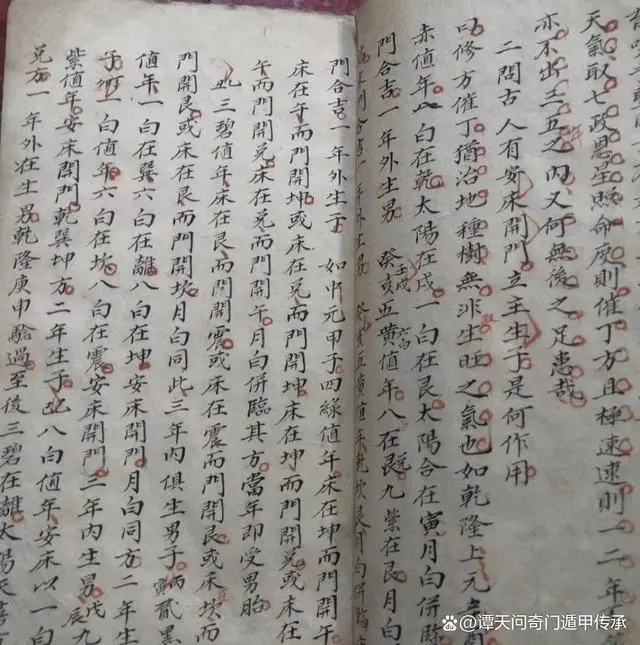 天氣取七政恩星照命度則催丁方且極速速則一二年
亦不出三五之內又何無後之足患哉
二問古人有安床開門立主生子是何作用
曰修方催丁猶治地種樹無非生旺之氣也如乾隆上元
赤值年八白在乾太陽在戌一白在艮太陽合在寅月白併臨
門合吉一年外生男 癸亥 壬戌 五黃值年八在艮九紫在艮月白
門合吉一年外生子 如中元甲子四綠值年床在坤而門開午
床在午而門開坤或床在兑而門開坤床在坤而門開兑或床在
午而門開兑床在兑而門開午月白併臨其方當年即受男胎
此三碧值年床在艮而門開震或床在震而門開艮或床坎而
門開艮或床在艮而門開坎月白同此三年內俱生男子 丙寅 貳黑
值年一白在巽六白在離八白在坤安床開門月白同方二年生
子 一白值年六白在坎八白在震安床開門三年內生男 戊辰 九
紫值年安床開門乾巽坤方二年生子 八白值年安床以一白
兑方一年外在生男乾隆庚申驗過至後三碧在離太陽
@谭天问奇门遁甲传承